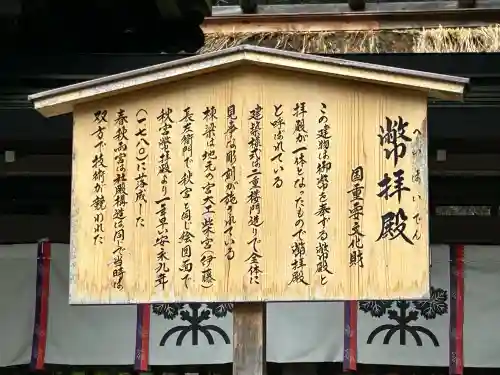 へいはいでん
幣拝殿
国重要文化財
この建物は御幣を奉ずる幣殿と
拝殿が一体となったもので幣拝殿
と呼ばれている
建築様式は二重楼門造りで全体に
見事な彫刻が施されている
棟梁は地元の宮大工柴宮(伊藤)
長左衛門で、秋宮と同じ絵図面で
秋宮幣拝殿より一年早い安永九年
(一七八〇)に落成した
春秋両宮は社殿構造は同じで当時は
双方で技術が競われた